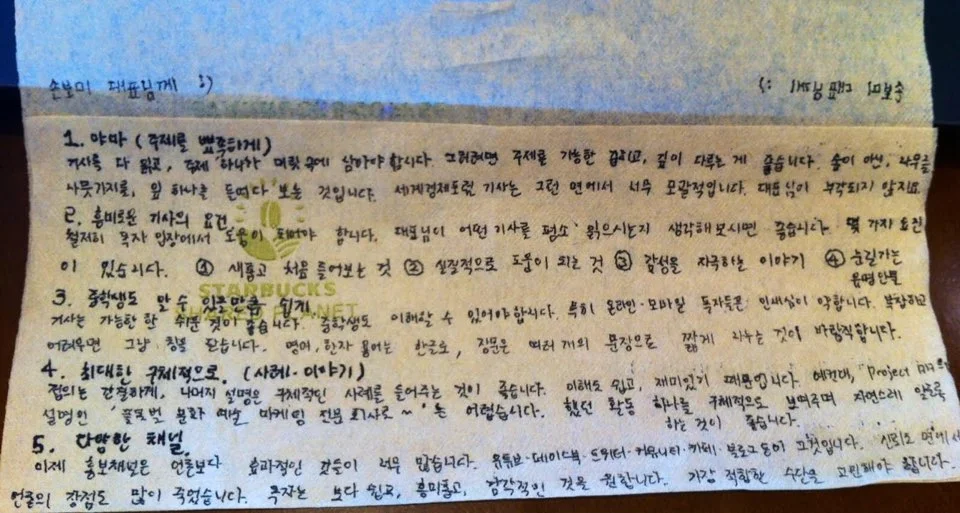 손보미 대표님께 :)
손보미 대표님께 :)
1. 야마 (주제를 뾰족하게)
기사를 다 읽고, 주제 하나가 머릿속에 남아야 합니다. 그러려면 주제를 가능한 좁히고, 깊이 다루는 게 좋습니다. 숲이 아닌, 나무를
나뭇가지를, 잎 하나를 들여다 보는 것입니다. 세계경제포럼 기사는 그런 면에서 너무 포괄적입니다. 대표님이 부각되지 않지요.
2. 흥미로운 기사의 요건
철저히 독자 입장에서 도움이 되어야 합니다. 대표님이 어떤 기사를 평소 읽으시는지 생각해보시면 좋습니다. 몇 가지 요건
이 있습니다. ① 새롭고 처음 들어보는 것 ② 실질적으로 도움이 되는 것 ③ 감성을 자극하는 이야기 ④ 눈길가는 유명인물
STARBUCKS
PLANET
3. 중학생도 알 수 있을만큼 쉽게
기사는 가능한 한 쉬운 것이 좋습니다. 중학생도 이해할 수 있어야 합니다. 특히 온라인·모바일 독자들은 인내심이 약합니다. 복잡하고
어려우면 그냥 창을 닫습니다. 영어, 한자 용어는 한글로, 장문은 여러 개의 문장으로 짧게 나누는 것이 바람직합니다.
4. 최대한 구체적으로. (사례·이야기)
정의는 간결하게, 나머지 설명은 구체적인 사례를 들어주는 것이 좋습니다. 이해도 쉽고, 재미있기 때문입니다. 예컨대, 'Project
설명인 '글로벌 문화 예술 마케팅 전문 회사로~'는 어렵습니다. 했던 활동 하나를 구체적으로 보여주며 자연스레 알도록
하는 것이 좋습니다.
5. 다양한 채널.
이제 홍보채널은 언론보다 효과적인 것들이 너무 많습니다. 유튜브·페이스북·트위터·커뮤니티·카페·블로그 등이 그것입니다. 신뢰도 면에서
언론의 강점도 많이 죽었습니다. 독자는 보다 쉽고, 흥미롭고, 감각적인 것을 원합니다. 가장 적합한 수단을 고민해야 합니다.